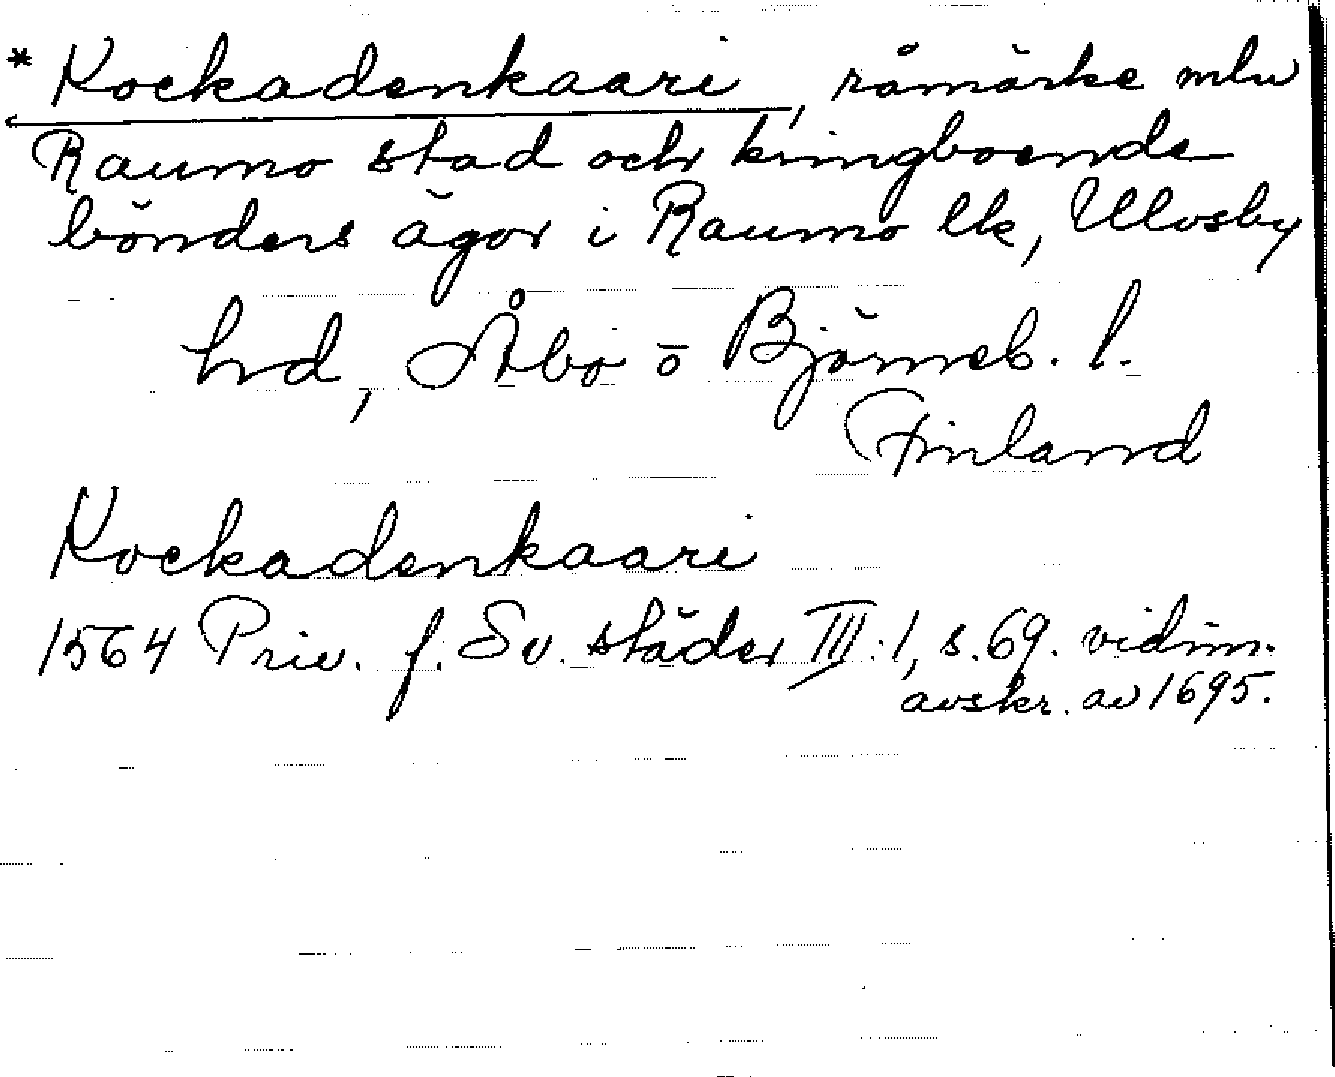 * Kockadenkaari, råmärke mlu
Raumo stad och kringboende
bönders ägor i Raumo lk, Ulvsby
hd, Åbo o Björneb. l.
Finland
Kockadenkaari
1564 Priv. f. Sv. städer III:1, s.69. vidim.
avskr. av 1695.